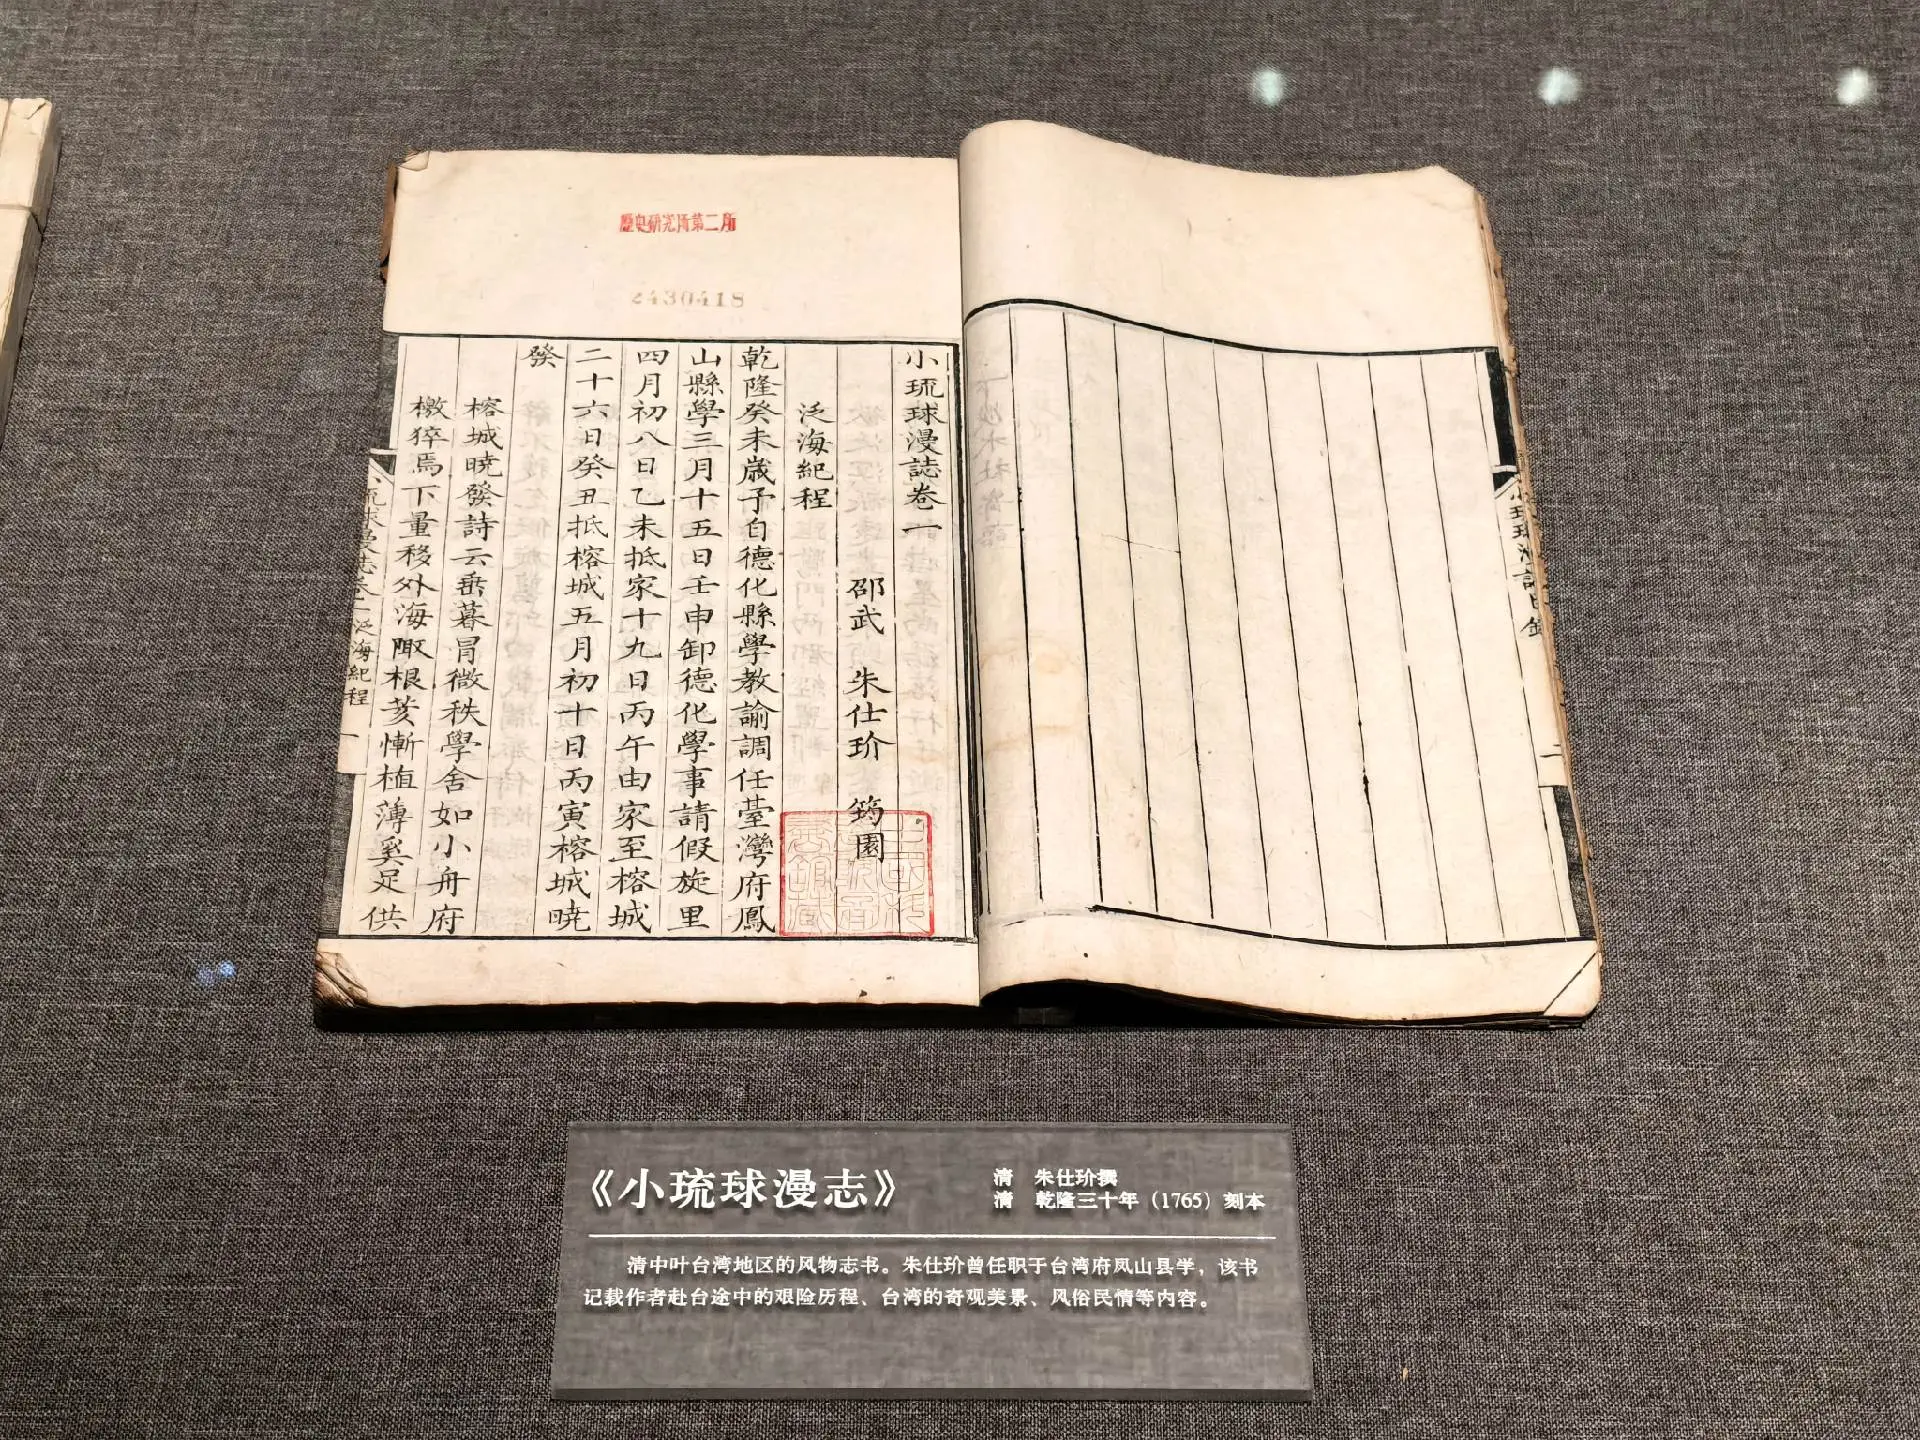 歷史研究所第二所
2430418
小琉球漫誌卷一
邵武　朱仕玠　筠園
泛海紀程
乾隆癸未歲予自德化縣學教諭調任臺灣府鳳
山縣學三月十五日壬申卸德化學事請假旋里
四月初八日乙未抵家十九日丙午由家至榕城
二十六日癸丑抵榕城五月初十日丙寅榕城曉
發
榕城曉發詩云垂暮冒微秩學舍如小舟府
檄猝焉下量移外海陬根荄慚植薄奚足供
泛海紀程
一
二
《小琉球漫志》
清　朱仕玠撰
清　乾隆三十年（1765）刻本
清中叶台湾地区的风物志书。朱仕玠曾任职于台湾府凤山县学，该书
记载作者赴台途中的艰险历程、台湾的奇观美景、风俗民情等内容。